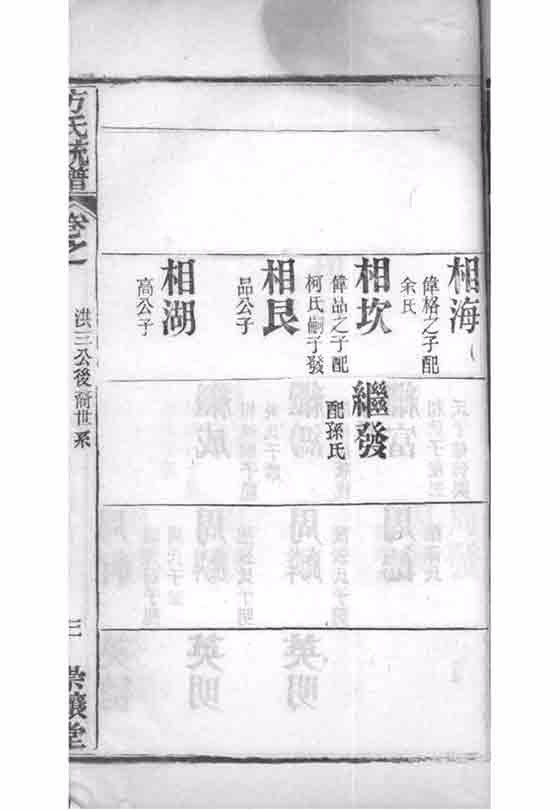 相海
偉格之子配
余氏
相坎
偉品之子配
柯氏嗣子發
相艮
品公子
相湖
高公子
繼發
配孫氏
方氏統譜
卷之一
洪三公後裔世系
三
崇讓堂